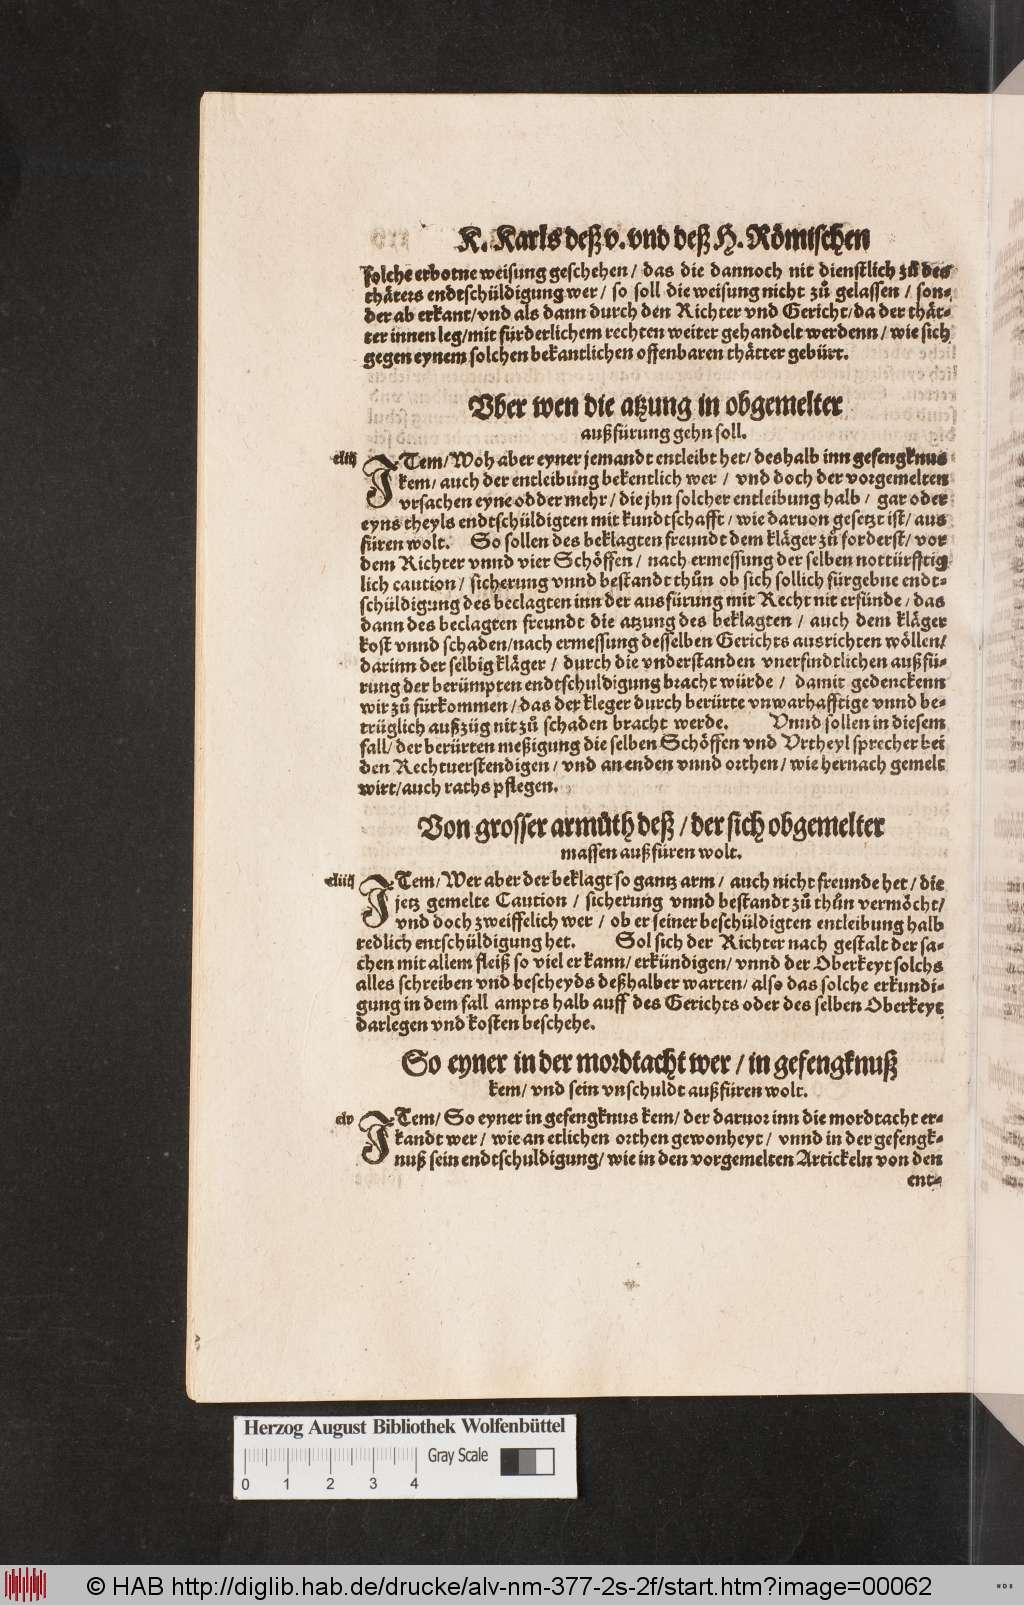 K. Karls deß v. vnd deß H. Römischen
solche erbotne weisung geschehen / das die dannoch nit dienstlich zů des
thäters endtschüldigung wer / so soll die weisung nicht zů gelassen / son-
der ab erkant/vnd als dann durch den Richter vnd Gericht/da der thät-
ter innen leg/mit fürderlichem rechten weiter gehandelt werdenn / wie sich
gegen eynem solchen bekantlichen offenbaren thätter gebürt.
Vber wen die atzung in obgemelter
außfürung gehn soll.
cliij
ITem/Woh aber eyner jemandt entleibt het/deshalb inn gefengknus
kem/auch der entleibung bekentlich wer / vnd doch der vorgemelten
vrsachen eyne odder mehr / die jhn solcher entleibung halb / gar oder
eyns theyls endtschüldigten mit kundtschafft / wie daruon gesetzt ist / aus
füren wolt. So sollen des beklagten freundt dem kläger zů forderst / vor
dem Richter vnnd vier Schöffen / nach ermessung der selben nottürfftig
lich caution / sicherung vnnd bestandt thůn ob sich sollich fürgebne endt-
schüldigung des beclagten inn der ausfürung mit Recht nit erfünde / das
dann des beclagten freundt die atzung des beklagten / auch dem kläger
kost vnnd schaden/nach ermessung desselben Gerichts ausrichten wöllen/
darinn der selbig kläger / durch die vnderstanden vnerfindtlichen außfü-
rung der berümpten endtschuldigung bracht würde / damit gedenckenn
wir zů fürkommen / das der kleger durch berürte vnwarhafftige vnnd be-
trüglich außzüg nit zů schaden bracht werde. Vnnd sollen in diesem
fall / der berürten meßigung die selben Schöffen vnd Vrtheyl sprecher bei
den Rechtuerstendigen / vnd an enden vnnd orthen / wie hernach gemelt
wirt/auch raths pflegen.
Von grosser armůth deß / der sich obgemelter
massen außfüren wolt.
cliiij
ITem/Wer aber der beklagt so gantz arm / auch nicht freunde het / die
jetz gemelte Caution / sicherung vnnd bestandt zů thůn vermöcht/
vnd doch zweiffelich wer / ob er seiner beschüldigten entleibung halb
redlich entschüldigung het. Sol sich der Richter nach gestalt der sa-
chen mit allem fleiß so viel er kann / erkündigen / vnnd der Oberkeyt solchs
alles schreiben vnd bescheyds deßhalber warten / also das solche erkundi-
gung in dem fall ampts halb auff des Gerichts oder des selben Oberkeyt
darlegen vnd kosten beschehe.
So eyner in der mordtacht wer / in gefengknuß
kem/ vnd sein vnschuldt außfüren wolt.
clv
ITem/ So eyner in gefengknus kem/ der daruor inn die mordtacht er-
kandt wer / wie an etlichen orthen gewonheyt / vnnd in der gefengk-
nuß sein endtschuldigung/ wie in den vorgemelten Artickeln von den
ent-
Herzog August Bibliothek Wolfenbüttel
Gray Scale
0 1 2 3 4
© HAB http://diglib.hab.de/drucke/alv-nm-377-2s-2f/start.htm?image=00062